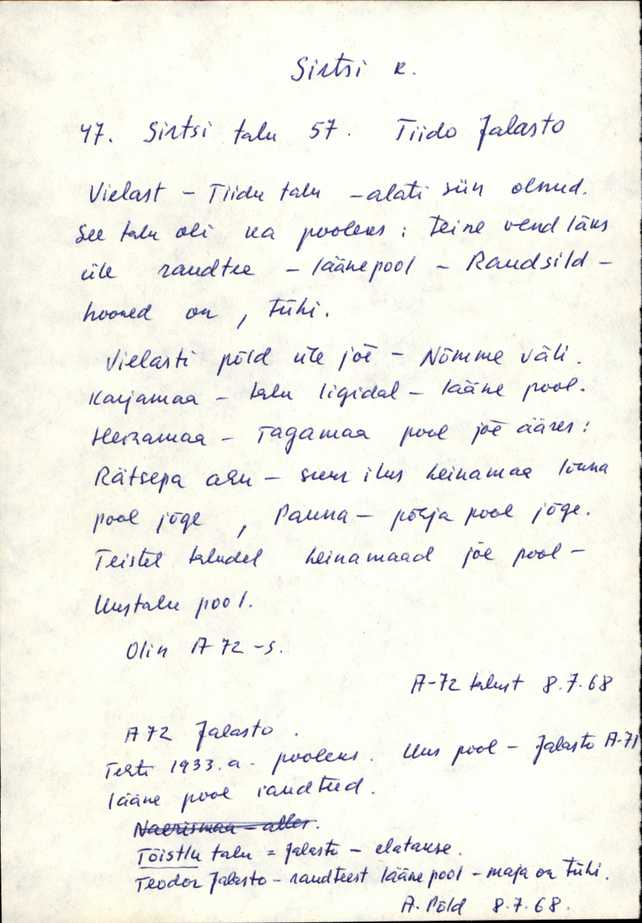 Sirtsi k.
47. Sirtsi talu 57. Tiido Jalasto
Vielast - Tiidu talu - alati siin olnud.
See talu oli ka pooleks: teine vend läks
üle raudtee - läänepool - Raudsild -
hooned on, tühi.
Vielasti põld üle jõe - Nõmme väli.
Karjamaa - talu ligidal - lääne pool.
Heinamaa - Tagamaa pool jõe ääres:
Rätsepa aru - suur ilus heinamaa lõuna
pool jõge, Panna - põhja pool jõge.
Teistel taludel heinamaad jõe pool -
Uustalu pool.
Olin A 72 -s.
A-72 talust 8.7.68
A 72 Jalasto.
Tehti 1933.a. pooleks. Uus pool - Jalasto A-71
lääne pool raudteed.
Naerismaa - alles.
Tõistlu talu = Jalasto - elatakse.
Teodor Jalasto - raudteest lääne pool - maja on tühi.
A. Põld 8.7.68.